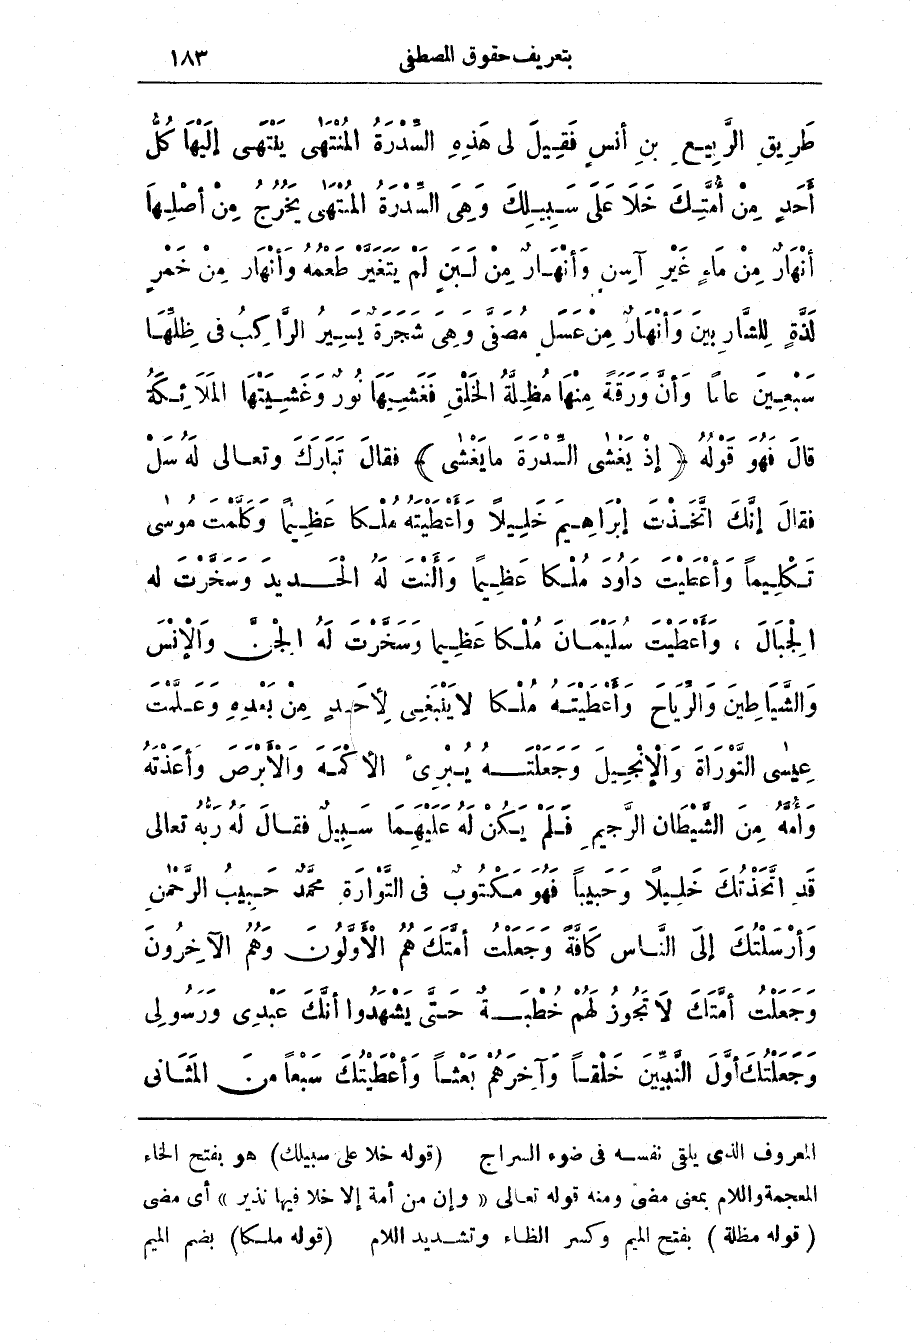 بتعريف حقوق المصطفى ١٨٣
طَرِيقِ الرَّبِيعِ بنِ أنَسٍ فَقِيلَ لى هَذِهِ السِّدْرَةُ المُنْتَهٰى يَنْتَهِى إلَيْهَا كُلُّ
أَحَدٍ مِنْ أُمَّتِكَ خَلَا عَلَى سَبِيلِكَ وَهِىَ السِّدْرَةُ المُنْتَهٰى يَخْرُجُ مِنْ أصْلِهَا
أنْهَارٌ مِنْ مَاءٍ غَيْرِ آسِنٍ وَأنْهَارٌ مِنْ لَبَنٍ لَمْ يَتَغَيَّرْ طَعْمُهُ وَأنْهَار مِنْ خَمْرٍ
لَذَّةٍ لِلشَّارِبينَ وَأنْهَارٌ مِنْ عَسَلٍ مُصَفًّى وَهِىَ شَجَرَةٌ يَسِيرُ الرَّاكِبُ فى ظِلِّهَا
سَبْعِينَ عامًا وَأنَّ وَرَقَةً مِنْهَا مُظِلَّةُ الخَلْقِ فَغَشِيَهَا نُورٌ وَغَشِيَتْهَا المَلَائِكَةُ
قالَ فَهُوَ قَوْلُهُ ﴿ إذْ يَغْشٰى السِّدْرَةَ مايَغْشٰى ﴾ فقالَ تَبَارَكَ وتعالى لَهُ سَلْ
فقالَ إنَّكَ اتَّخَذْتَ إبْرَاهِيمَ خَلِيلًا وَأعْطَيْتَهُ مُلْكا عَظِيمًا وَكَلَّمْتَ مُوسٰى
تَكْلِيماً وَأعْطَيْتَ دَاوُدَ مُلْكا عَظِيمًا وَألَنْتَ لَهُ الحَدِيدَ وَسَخَّرْتَ له
الجْبَالَ ، وَأَعْطَيْتَ سُلَيْمَانَ مُلْكا عَظِيما وَسَخَّرْتَ لَهُ الجْنَّ وَالْإنْسَ
وَالشَّيَاطِينَ وَالرِّيَاحَ وَأعْطَيْتَهُ مُلْكا لايَنْبَغِى لِأحَدٍ مِنْ بَعْدِهِ وَعَلَّمْتَ
عِيسٰى التَّوْرَاةَ وَالْإنْجِيلَ وَجَعَلْتَهُ يُبْرِىُٔ الأَكْمَهَ وَالْأبْرَصَ وَأعَذْتَهُ
وَأُمَّهُ مِنَ الشَّيْطَانِ الرَّجيمِ فَلَمْ يَكُنْ لَهُ عَلَيْهِمَا سَبِيلٌ فقالَ لَهُ رَبُّهُ تعالى
قَدِ اتَّخَذْتُكَ خَلِيلًا وَحَبِيباً فَهُوَ مَكْتُوبٌ فى التَّوْارَةِ مُحَمَّدٌ حَبِيبُ الرَّحْمٰنِ
وَأرْسَلْتُكَ إلَى النَّاسِ كَافَّةً وَجَعَلْتُ أُمَّتَكَ هُمُ الْأَوَّلُونَ وَهُمُ الآخِرُونَ
وَجَعَلْتُ أُمَّتَكَ لَا تَجُوزُ لَهُمْ خُطْبَةٌ حَتَّى يَشْهَدُوا أنَّكَ عَبْدِى وَرَسُولِى
وَجَعَلْتُكَ أوَّلَ النَّبِيِّينَ خَلْقاً وَآخِرَهُمْ بَعْثاً وَأعْطَيْتُكَ سَبْعاً منَ المَثَانى
المعروف الذى يلقى نفسه فى ضوء السراج (قوله خلا على سبيلك) هو بفتح الخاء
المعجمة واللام بمعنى مضى ومنه قوله تعالى « وإن من أمة إلا خلا فيها نذير » أى مضى
( قوله مظلة ) بفتح الميم وكسر الظاء وتشديد اللام (قوله ملكا) بضم الميم